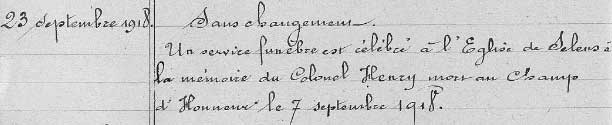 23 septembre 1918. Sans changement.
Un service funèbre est célébré à l'Eglise de Selens à
la mémoire du Colonel Henry mort au Champ
d'Honneur le 7 septembre 1918.